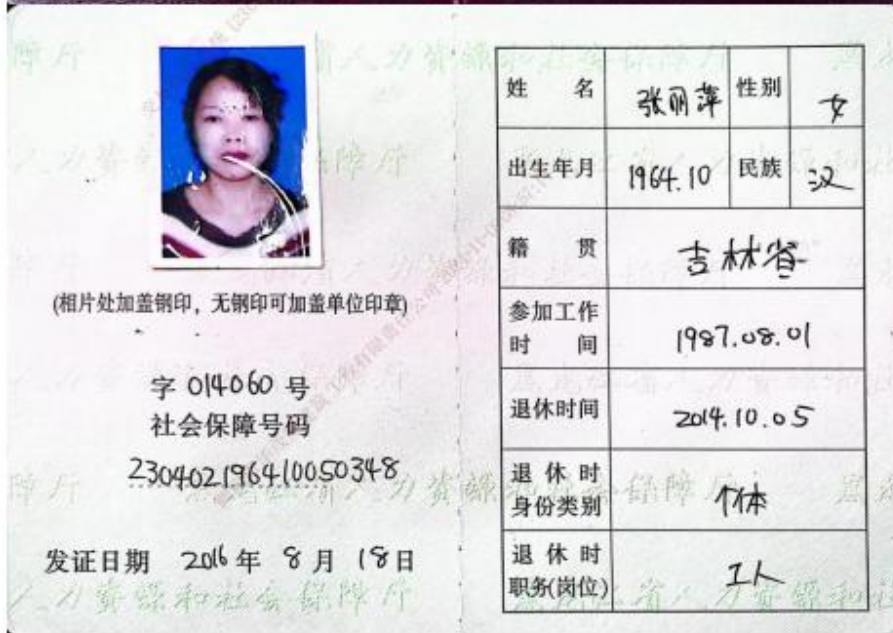 (相片处加盖钢印，无钢印可加盖单位印章)
字 014060 号
社会保障号码
230402196410050348
发证日期 2016 年 8 月 18 日
姓 名 张丽萍 性别 女
出生年月 1964.10 民族 汉
籍 贯 吉林省
参加工作
时 间 1987.08.01
退休时间 2014.10.05
退 休 时
身份类别 个体
退 休 时
职务(岗位) 工人